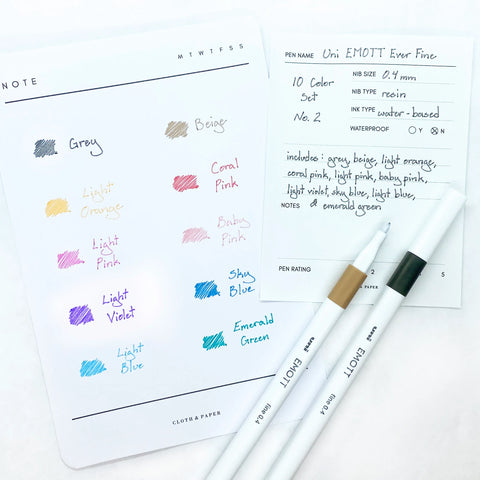 NOTE
M T W T F S S
Grey
Beige
Light
Orange
Coral
Pink
Light
Pink
Baby
Pink
Light
Violet
Sky
Blue
Light
Blue
Emerald
Green
CLOTH & PAPER
PEN NAME Uni EMOTT Ever Fine
10 Color
Set
No. 2
NIB SIZE 0.4mm
NIB TYPE resin
INK TYPE water-based
WATERPROOF Y N
includes: grey, beige, light orange,
coral pink, light pink, baby pink,
light violet, sky blue, light blue,
NOTES & emerald green
PEN RATING 2 4 5
& PAPER
uni EMOTT fine 0.4
uni EMOTT fine 0.4